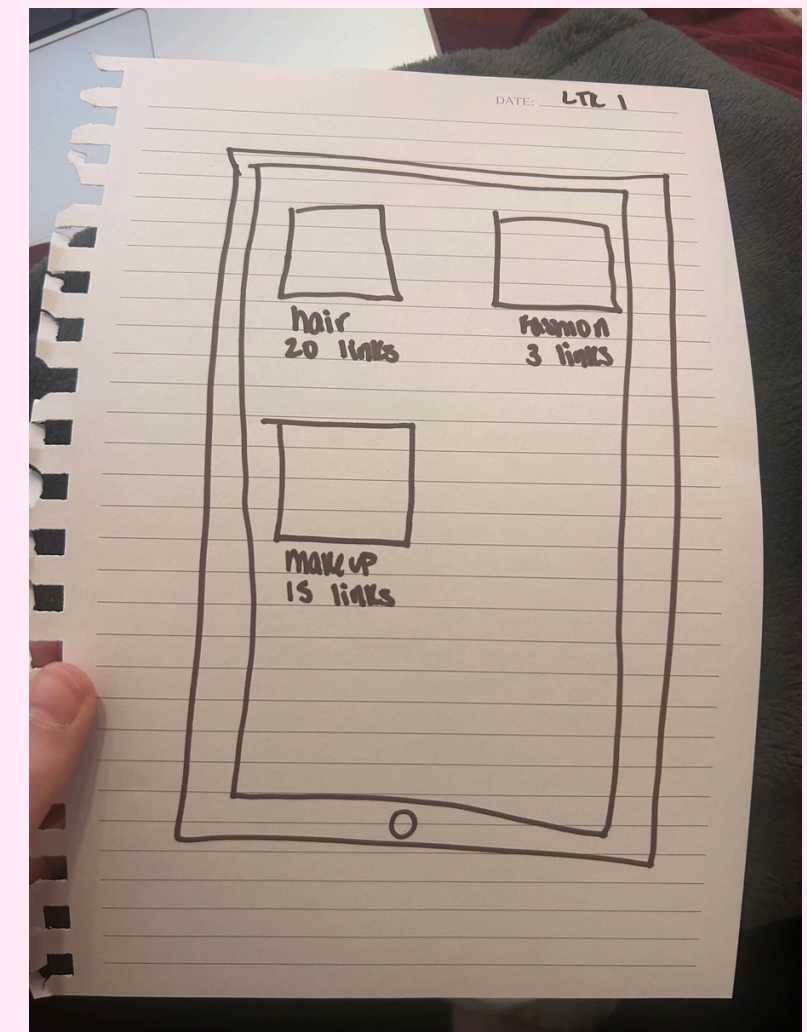 DATE: LTK 1
hair
20 links
Fashion
3 links
makeup
15 links